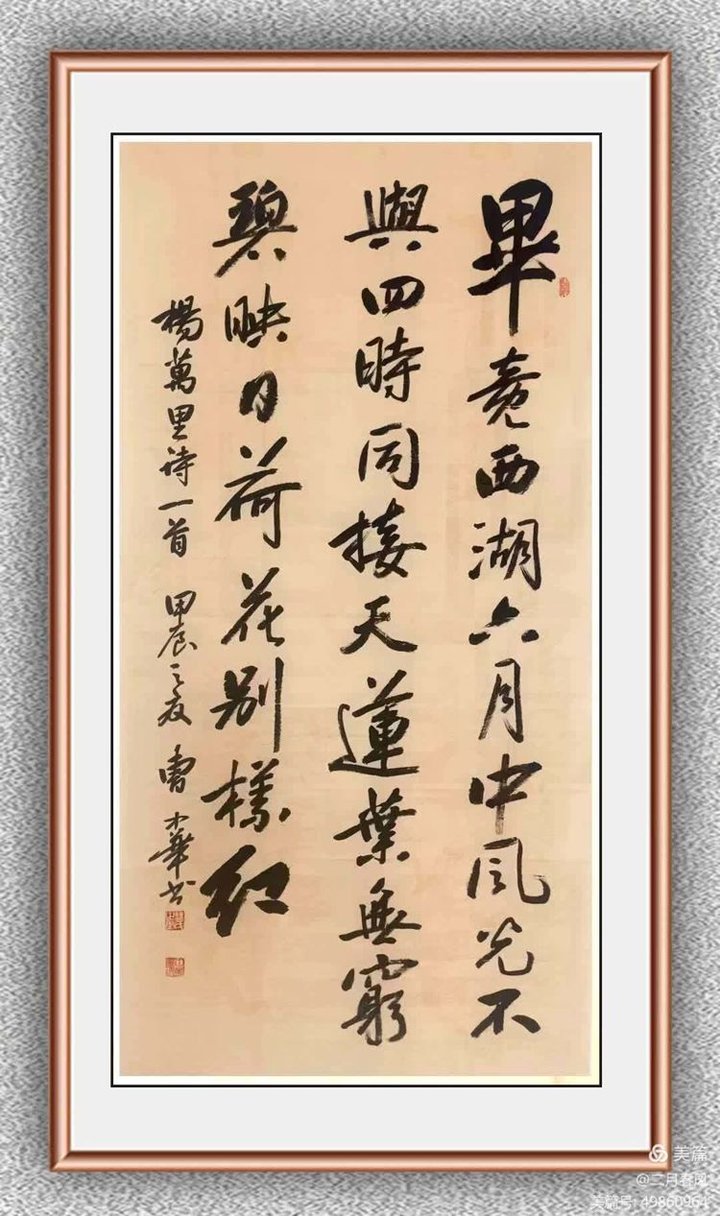 畢竟西湖六月中風光不
與四時同接天蓮葉無窮
碧映日荷花别樣紅
楊萬里诗一首 甲辰之夏 曹小華书
美篇
@二月春风
美篇号: 49860964